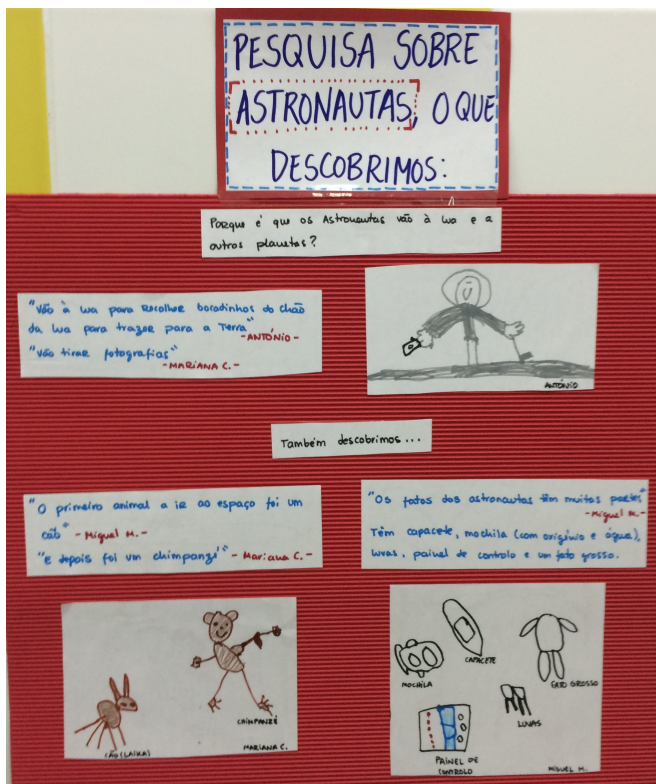 PESQUISA SOBRE
ASTRONAUTAS, O QUE
DESCOBRIMOS:
Porque é que os Astronautas vão à lua e a
outros planetas?
"Vão à lua para recolher bocadinhos do chão
da lua para trazer para a Terra"
- ANTÓNIO -
"Vão tirar fotografias"
- MARIANA C. -
ANTÓNIO
Também descobrimos...
"O primeiro animal a ir ao espaço foi um
cão" - Miguel M. -
"E depois foi um chimpanzé" - Mariana C. -
"Os fatos dos astronautas têm muitas partes"
- Miguel M. -
Têm capacete, mochila (com oxigénio e água),
luvas, painel de controlo e um fato grosso.
CHIMPANZÉ
CÃO (LAIKA)
MARIANA C.
CAPACETE
MOCHILA
FATO GROSSO
LUVAS
PAINEL DE
CONTROLO
MIGUEL M.